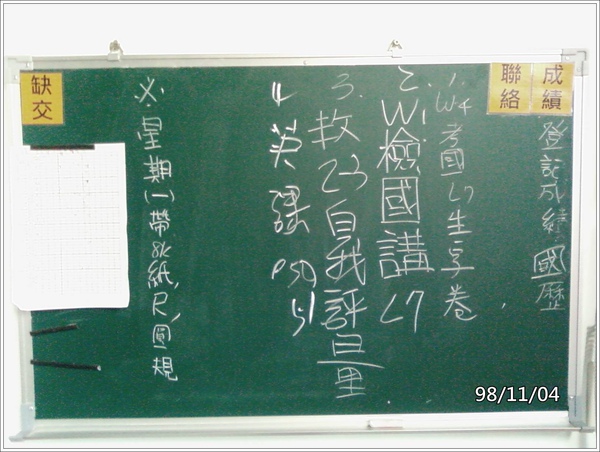 成績
登記成績 國歷
聯絡
1. W4考國L7生字卷
2. W1檢國講L7
3. 自我評量
4. 英課 P50, 51
※星期(一)帶8K紙,尺,圓規
缺交
98/11/04